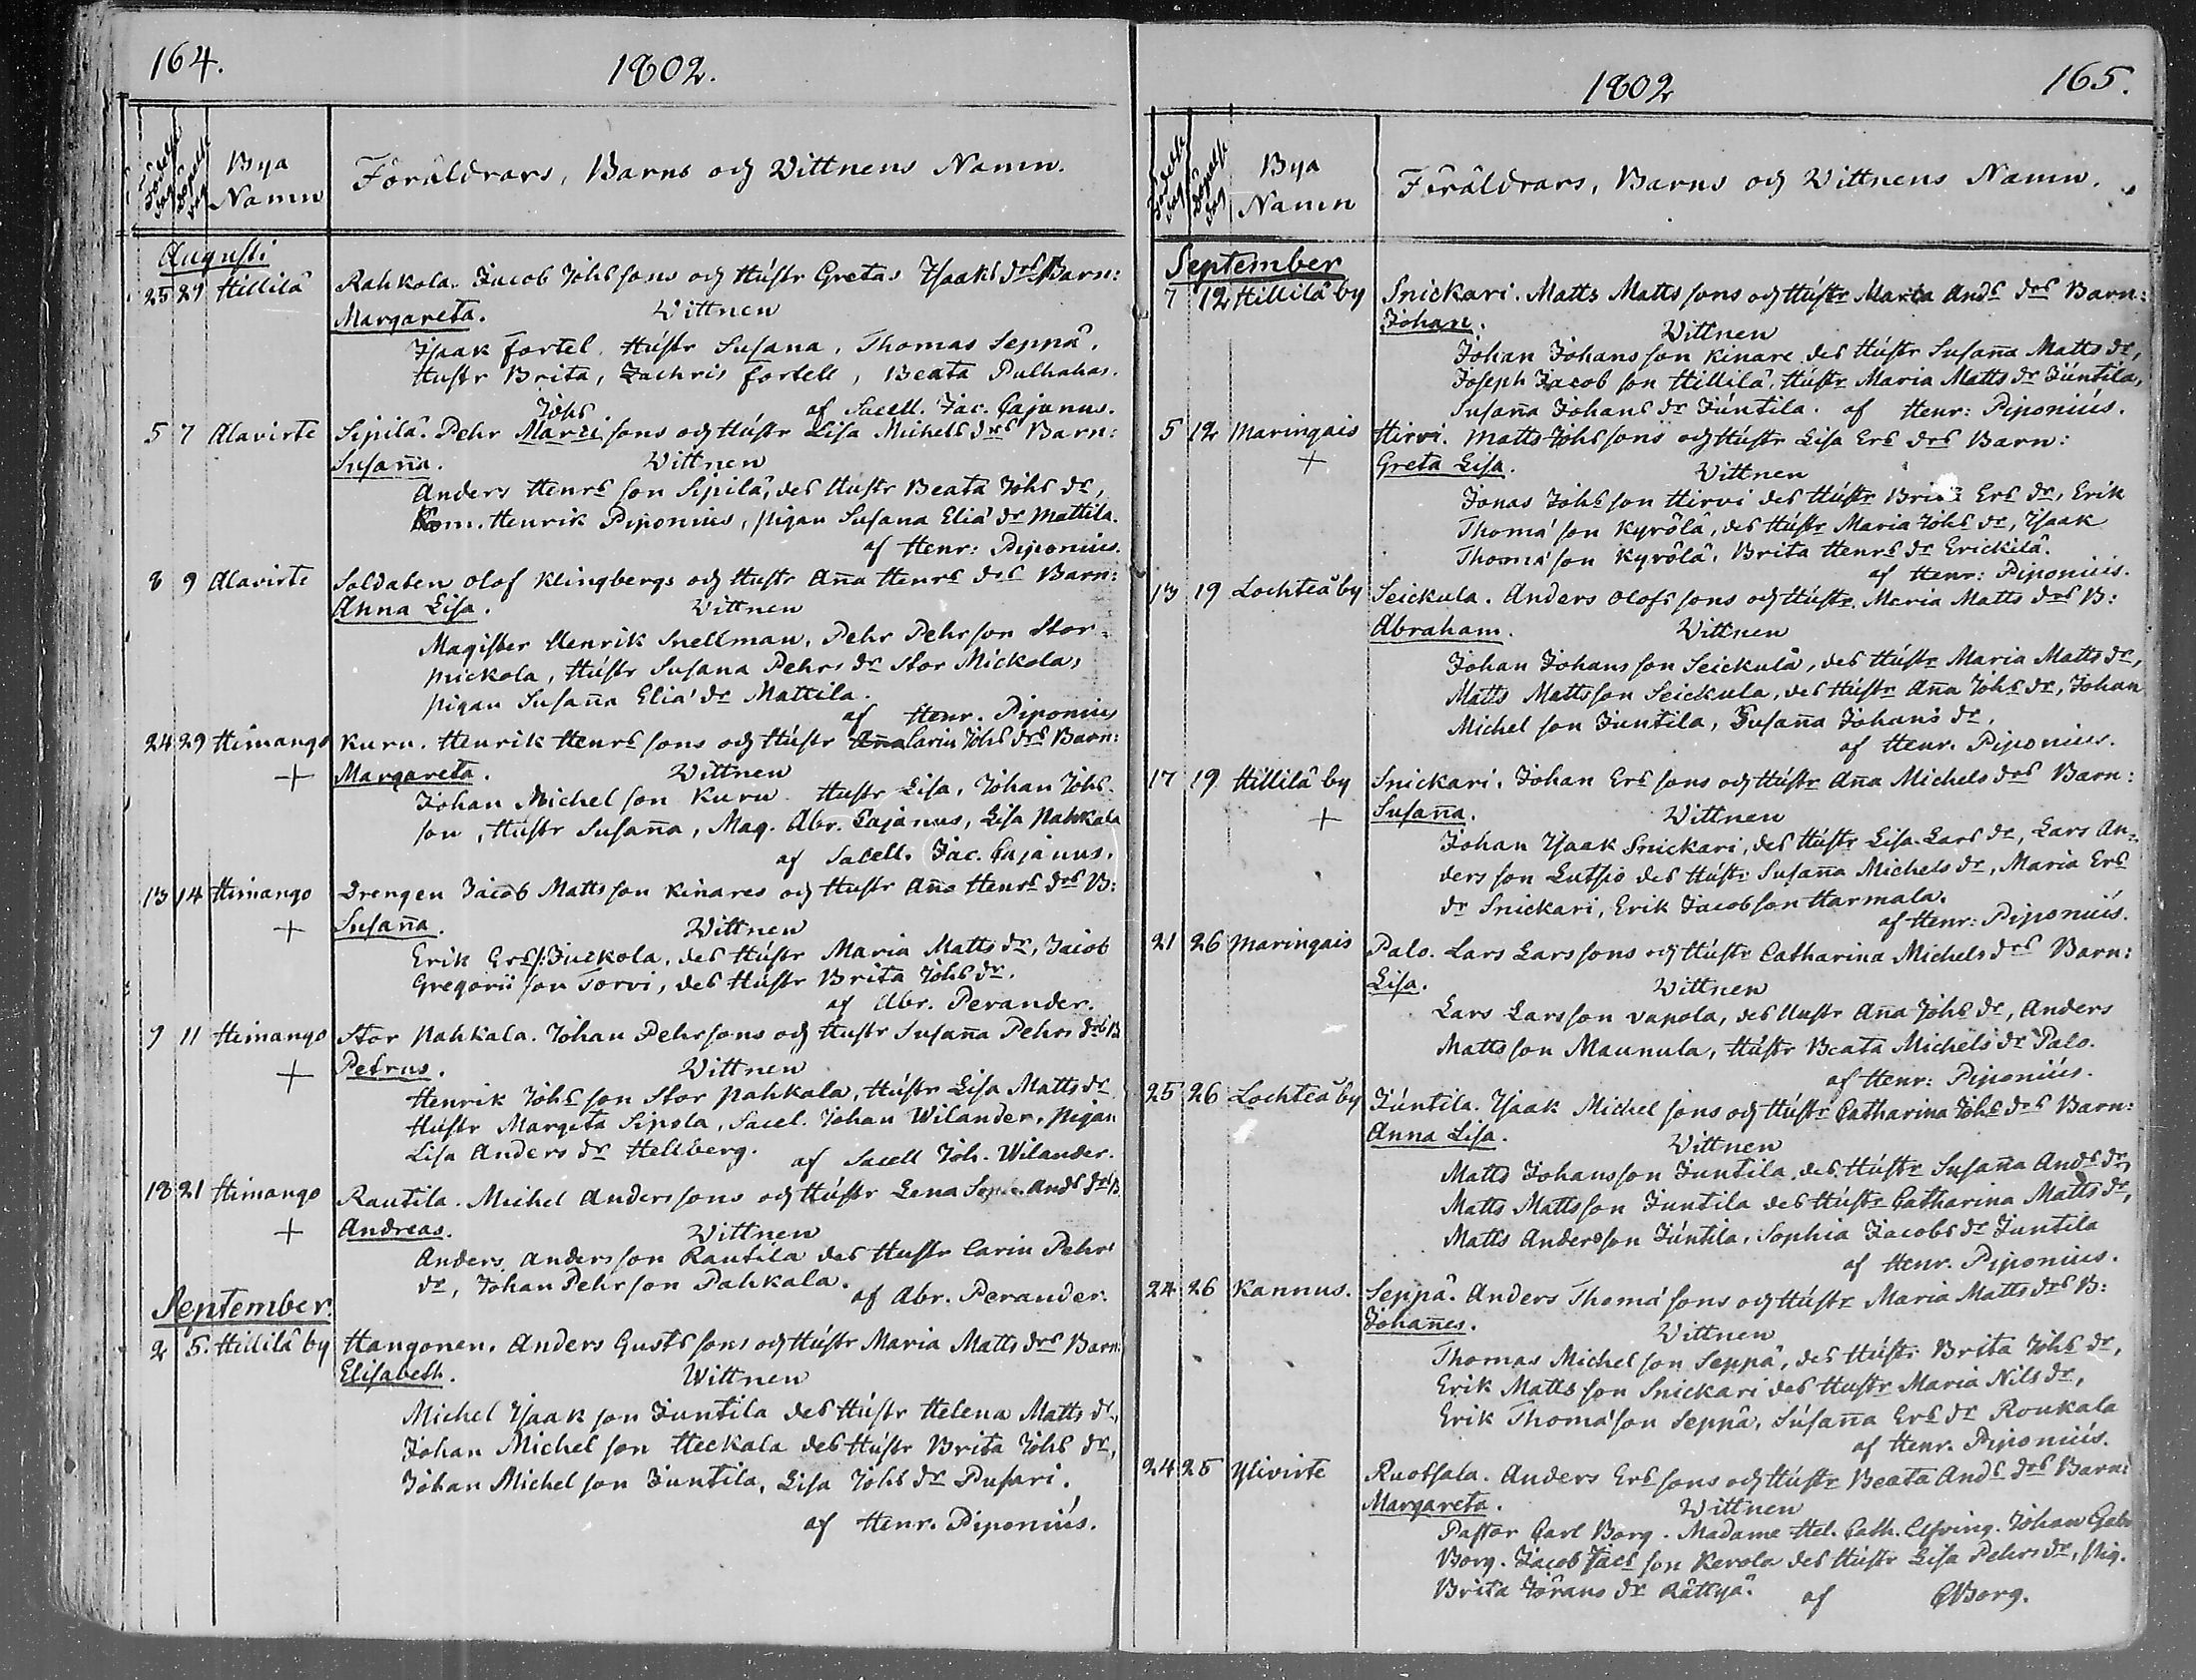 164.
1802.
Födelse dag Döpelse dag Bya Namn Föräldrars, Barns och Wittnens Namn.
Augusti
25 29 Hillilä Rahkola. Jacob Johs sons och Hustr Gretas Isaaks drs Barn:
Margareta. Wittnen
Isaak fortel. Hustr Susana, Thomas Seppä,
Hustr Brita, Zachris fortell, Beata Pulhahas.
af Sacell. Jac. Cajanus.
5 7 Alavirte Sipilä. Pehr Johs sons och Hustr Lisa Michels drs Barn:
Susaña. Wittnen
Anders Henrs son Sipilä, des Hustr Beata Johs dr,
Henrik Piponius, pigan Susana Elia' dr Mattila.
af Henr: Piponius.
8 9 Alavirte Soldaten Olof Klingbergs och Hustr Aña Henrs drs Barn:
Anna Lisa. Wittnen
Magister Henrik Snellman, Pehr Pehrson Stor-
mickola, Hustr Susana Pehrs dr Stor Mickola,
pigan Susaña Elia' dr Mattila.
af Henr. Piponius
24 29 Himango Kuru. Henrik Henrs sons och Hustr Carin Johs drs Barn:
+ Margareta. Wittnen
Johan Michelson Kuru Hustr Lisa, Johan Johs
son, Hustr Susaña, Mag. Abr. Cajanus, Lisa Pahkala
af Sacell. Jac. Cajanus.
13 14 Himango Drengen Jacob Mattsson Kinares och Hustr Aña Henrs drs B:
+ Susaña. Wittnen
Erik Ers s: Juckola, des Hustr Maria Matts dr, Jacob
Gregorii son Torvi, des Hustr Brita Johs dr.
af Abr. Perander.
9 11 Himango Stor Pahkala. Johan Pehrsons och Hustr Susaña Pehrs drs B
+ Petrus. Wittnen
Henrik Johs son Stor Pahkala, Hustr Lisa Matts dr
Hustr Margeta Sipola, Sacel. Johan Wilander, pigan
Lisa Anders dr Hellberg. af Sacell Joh. Wilander.
18 21 Himango Rautila. Michel Anderssons och Hustr Lena Ands drs B
+ Andreas. Wittnen
Anders Andersson Rautila des Hustr Carin Pehrs
dr, Johan Pehrson Pahkala.
af Abr. Perander.
September.
2 5. Hillilä by Hangonen. Anders Gusts sons och Hustr Maria Matts drs Barn:
Elisabeth. Wittnen
Michel Isaakson Juntila des Hustr Helena Matts dr,
Johan Michelson Heckala des Hustr Brita Johs dr,
Johan Michelson Juntila, Lisa Johs dr Pusari.
af Henr. Piponius.
1802 165.
Födelse dag Döpelse dag Bya Namn Föräldrars, Barns och Wittnens Namn.
September
7 12 Hillilä by Snickari. Matts Mattssons och Hustr Maria Ands drs Barn:
Johan. Wittnen
Johan Johansson Kinare des Hustr Susaña Matts dr,
Joseph Jacobson Hillilä, Hustr Maria Matts dr Juntila,
Susaña Johans dr Juntila. af Henr: Piponius.
5 12 Maringais Hirvi. Matts Johs sons och Hustr Lisa Ers drs Barn:
+ Greta Lisa. Wittnen
Jonas Johs son Hirvi des Hustr Ers dr, Erik
Thoma' son Kyrölä, des Hustr Maria Johs dr, Isaak
Thoma' son Kyrölä, Brita Henrs dr Erickilä.
af Henr: Piponius.
13 19 Lochteå by Seickula. Anders Olofs sons och Hustr Maria Matts drs B:
Abraham. Wittnen
Johan Johansson Seickula, des Hustr Maria Matts dr,
Matts Mattsson Seickula, des Hustr Aña Johs dr, Johan
Michelson Juntila, Susaña Johans dr.
af Henr. Piponius.
17 19 Hillilä by Snickari. Johan Ers sons och Hustr Aña Michels drs Barn:
+ Susaña. Wittnen
Johan Isaak Snickari, des Hustr Lisa Lars dr, Lars An-
dersson Lutsio des Hustr Susaña Michels dr, Maria Ers
dr Snickari, Erik Jacobson Harmala.
af Henr: Piponius.
21 26 Maringais Palo. Lars Larssons och Hustr Catharina Michels drs Barn:
Lisa. Wittnen
Lars Larsson Vapola, des Hustr Aña Johs dr, Anders
Mattsson Maunula, Hustr Beata Michels dr Palo.
af Henr: Piponius.
25 26 Lochteå by Juntila. Isaak Michelsons och Hustr Catharina Johs drs Barn:
Anna Lisa. Wittnen
Matts Johansson Juntila, des Hustr Susaña Ands dr,
Matts Mattsson Juntila des Hustr Catharina Matts dr,
Matts Andersson Juntila, Sophia Jacobs dr Juntila
af Henr. Piponius.
24 26 Kannus. Seppä. Anders Thoma' sons och Hustr Maria Matts drs B:
Johañes. Wittnen
Thomas Michelson Seppä, des Hustr Brita Johs dr,
Erik Mattsson Snickari des Hustr Maria Nils dr,
Erik Thoma' son Seppä, Susaña Ers dr Roukala
af Henr. Piponius.
24 25 Ylivirte Ruotsala. Anders Ers sons och Hustr Beata Ands drs Barn:
Margareta. Wittnen
Pastor Carl Borg. Madame Hel. Cath. Elfving. Johan Gabr
Borg. Jacob Jacs son Kerola des Hustr Lisa Pehrs dr, pig.
Brita Jörans dr Rättyä. af CBorg.